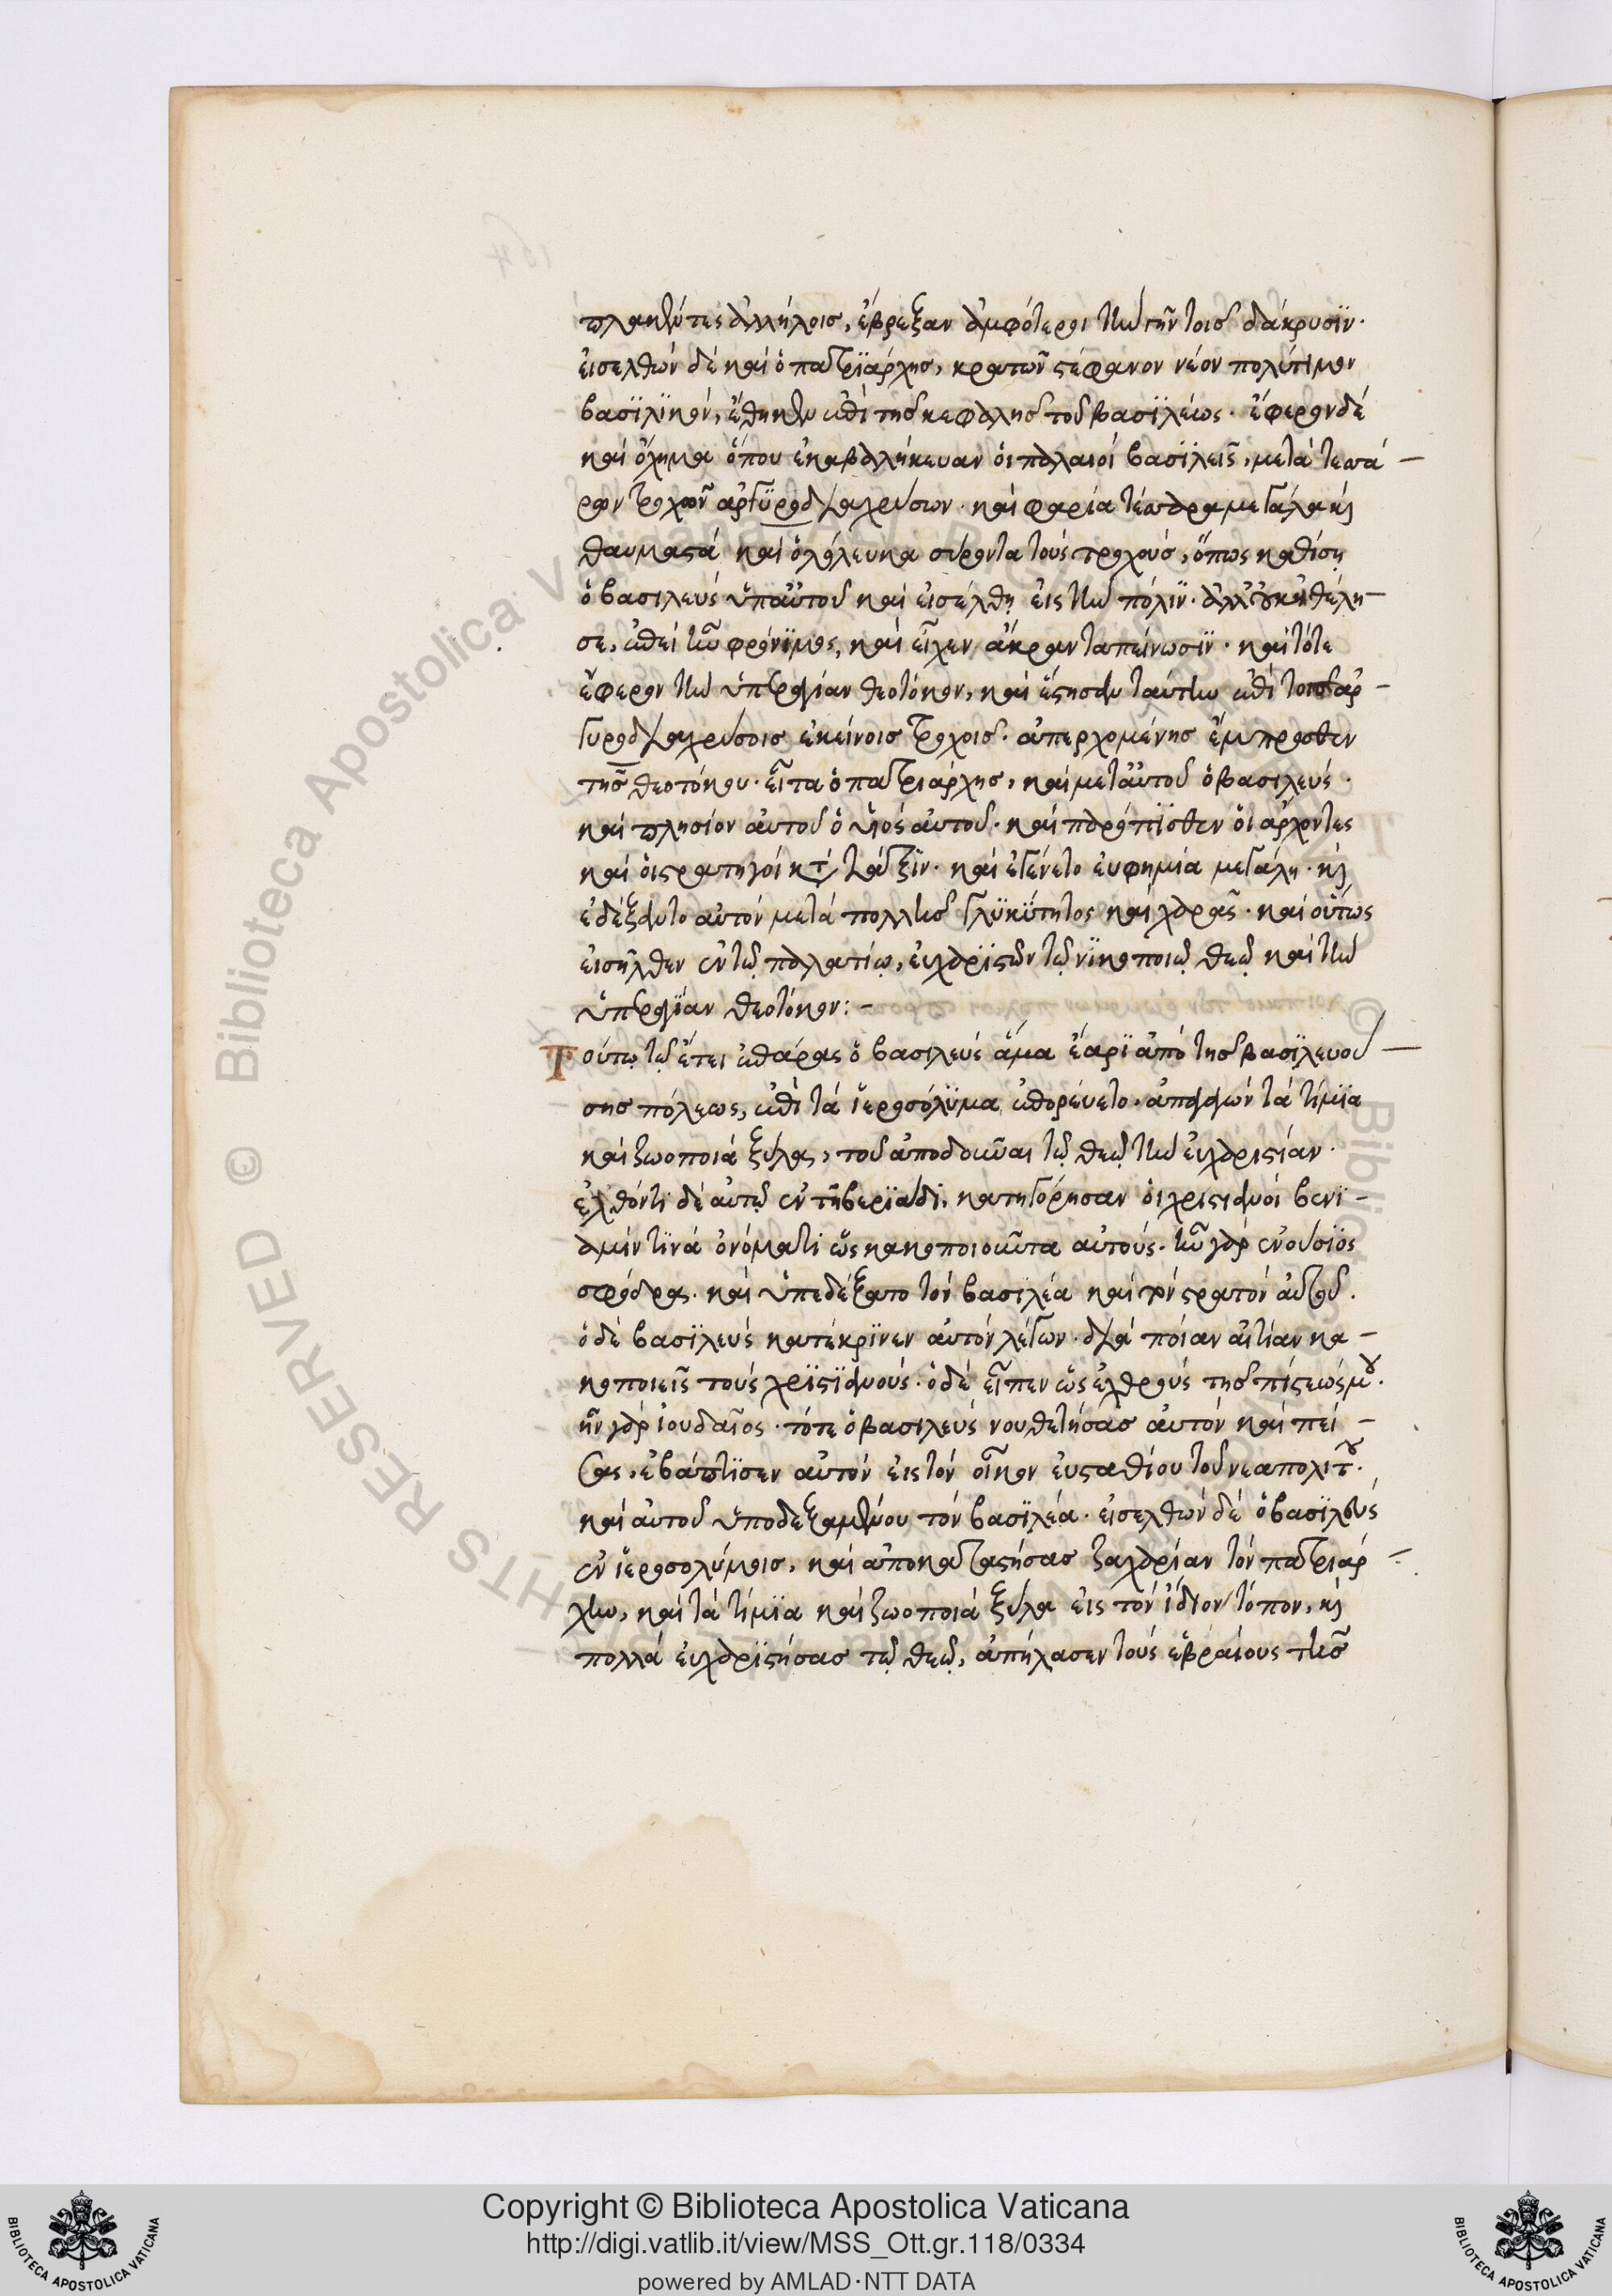 πλακέντες ἀλλήλοις, ἔβρεξαν ἀμφότεροι τὴν γῆν τοῖσ δάκρυσϊν·
εἰσελθών δὲ καὶ ὁ πατρϊάρχησ, κρατῶν στέφανον νέον πολύτιμον
βασϊλϊκόν, ἔθηκεν ἐπὶ τῆσ κεφαλῆσ τοῦ βασϊλέως· ἔφερον δὲ
καὶ ὄχημα ὅπου ἐκαβαλλίκευαν ὁι παλαιοί βασϊλεῖς, μετὰ τεσσά-
ρων τροχῶν ἀργϋροδιαχρύσων· καὶ φαρία τέσσαρα μεγάλα κ(αὶ)
θαυμαστά καὶ ὁλόλευκα σύροντα τοὺς τροχούσ, ὅπως καθίσῃ
ὁ βασιλεύς ὑπ' αὐτοῦ καὶ εἰσέλθῃ εἰς τὴν πόλϊν· ἀλλ' οὐκ ἠθέλη-
σε, ἐπεὶ ἦν φρόνϊμος, καὶ εἶχεν ἄκραν ταπείνωσϊν· καὶ τότε
ἔφερον τὴν ὑπεραγίαν θεοτόκον, καὶ ἔστησαν ταύτην ἐπὶ τοῖσ ἀρ-
γυροδιαχρύσοισ ἐκείνοισ τροχοῖσ· ἀπερχομένησ ἔμπροσθεν
τῆσ θεοτόκου· εἶτα ὁ πατριάρχησ, καὶ μετ' αὐτοῦ ὁ βασιλεύς·
καὶ πλησίον αὐτοῦ ὁ υἱός αὐτοῦ· καὶ παρόπϊσθεν ὁι ἄρχοντες
καὶ ὁι στρατηγοί κατὰ τάξϊν· καὶ ἐγένετο ἐυφημία μεγάλη· κ(αὶ)
ἐδέξαντο αὐτόν μετὰ πολλῆσ γλϋκϋτητος καὶ χαρᾶς· καὶ οὕτως
εἰσῆλθεν ἐν τῷ παλατίῳ, ἐυχαρϊστῶν τῷ νϊκοποιῷ θεῷ καὶ τὴν
ὑπεραγϊαν θεοτόκον:-
Τούτῳ τῷ ἔτει ἐπάρας ὁ βασιλεύς ἅμα ἔαρϊ ἀπὸ τῆσ βασϊλευού-
σησ πόλεως, ἐπὶ τὰ ἱεροσόλϋμα ἐπορεύετο· ἀπαγαγών τὰ τίμϊα
καὶ ζωοποιά ξύλα, τοῦ ἀποδοῦναι τῷ θεῷ τὴν ἐυχαριστίαν·
ἐλθόντι δὲ αὐτῷ ἐν τῇ βερϊάδι, κατηγόρησαν ὁι χριστιανοί βενϊ-
αμίν τϊνά ὀνόματι ὡς κακοποιοῦντα αὐτούς· ἦν γὰρ ἐνούσϊος
σφόδρα· καὶ ὑπεδέξατο τὸν βασιλέα καὶ τὸν στρατόν αὐτοῦ·
ὁ δὲ βασϊλεύς κατέκρϊνεν αὐτόν λέγων· διὰ ποίαν αἰτίαν κα-
κοποιεῖς τοὺς χρϊστϊανούς· ὁ δὲ εἶπεν ὡς ἐχθρούς τῆσ πίστεώς μου·
ἦν γὰρ ἰουδαῖος· τότε ὁ βασιλεύς νουθετήσασ αὐτόν καὶ πεί-
σας, ἐβάπτϊσεν αὐτόν εἰς τὸν οἶκον ἐυσταθίου τοῦ νεαπολίτου·
καὶ αὐτοῦ ὑποδεξαμένου τὸν βασϊλέα· εἰσελθών δὲ ὁ βασϊλεύς
ἐν ἱεροσολύμοις, καὶ ἀποκαταστήσασ ζαχαρίαν τὸν πατριάρ-
χην, καὶ τὰ τίμϊα καὶ ζωοποιά ξύλα εἰς τὸν ἴδιον τόπον, κ(αὶ)
πολλὰ ἐυχαρϊστήσασ τῷ θεῷ, ἀπήλασεν τοὺς ἑβραίους τῆσ
Copyright © Biblioteca Apostolica Vaticana
http://digi.vatlib.it/view/MSS_Ott.gr.118/0334
powered by AMLAD·NTT DATA